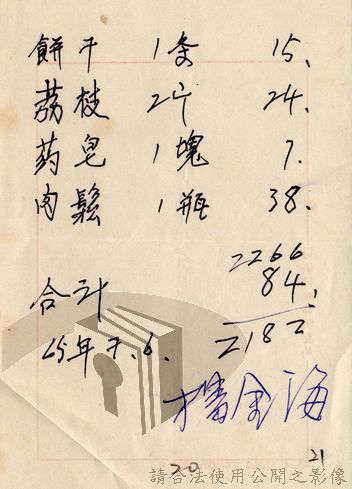 餅干 1条 15.
荔枝 2斤 24.
药皂 1塊 7.
肉鬆 1瓶 38.
2266
合计 84.
2182
65年7.6.
金海
20
21
請合法使用公開之影像